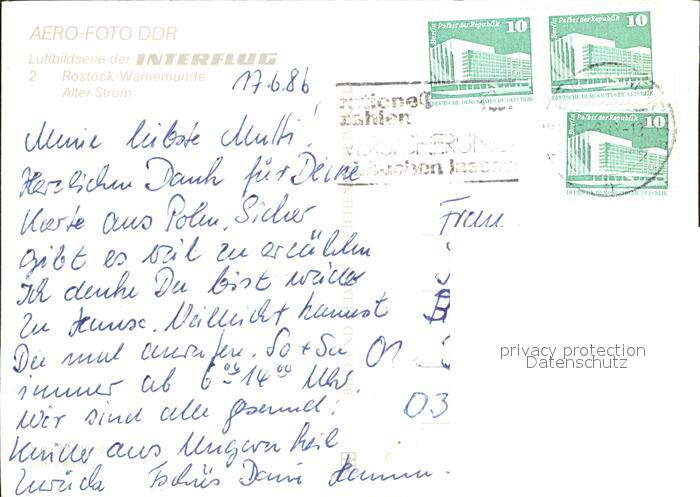 AERO-FOTO DDR
Luftbildserie der INTERFLUG
2 Rostock-Warnemünde
Alter Strom
17.6.86
10
Berlin Palast der Republik
DEUTSCHE DEMOKRATISCHE REPUBLIK
10
Berlin Palast der Republik
DEUTSCHE DEMOKRATISCHE REPUBLIK
10
Berlin Palast der Republik
DEUTSCHE DEMOKRATISCHE REPUBLIK
rationell
zahlen
VERSICHERUNG
abbuchen lassen
Meine liebste Mutti!
Herzlichen Dank für Deine
Karte aus Polen. Sicher
gibt es viel zu erzählen
Ich denke Du bist wieder
zu Hause. Vielleicht kannst
Du mal anrufen. So + Sa
immer ab 6⁰⁰-14⁰⁰ Uhr.
Wir sind alle gesund!
Kinder aus Ungarn heil
zurück. Tschüs Deine
Frau
03
privacy protection
Datenschutz